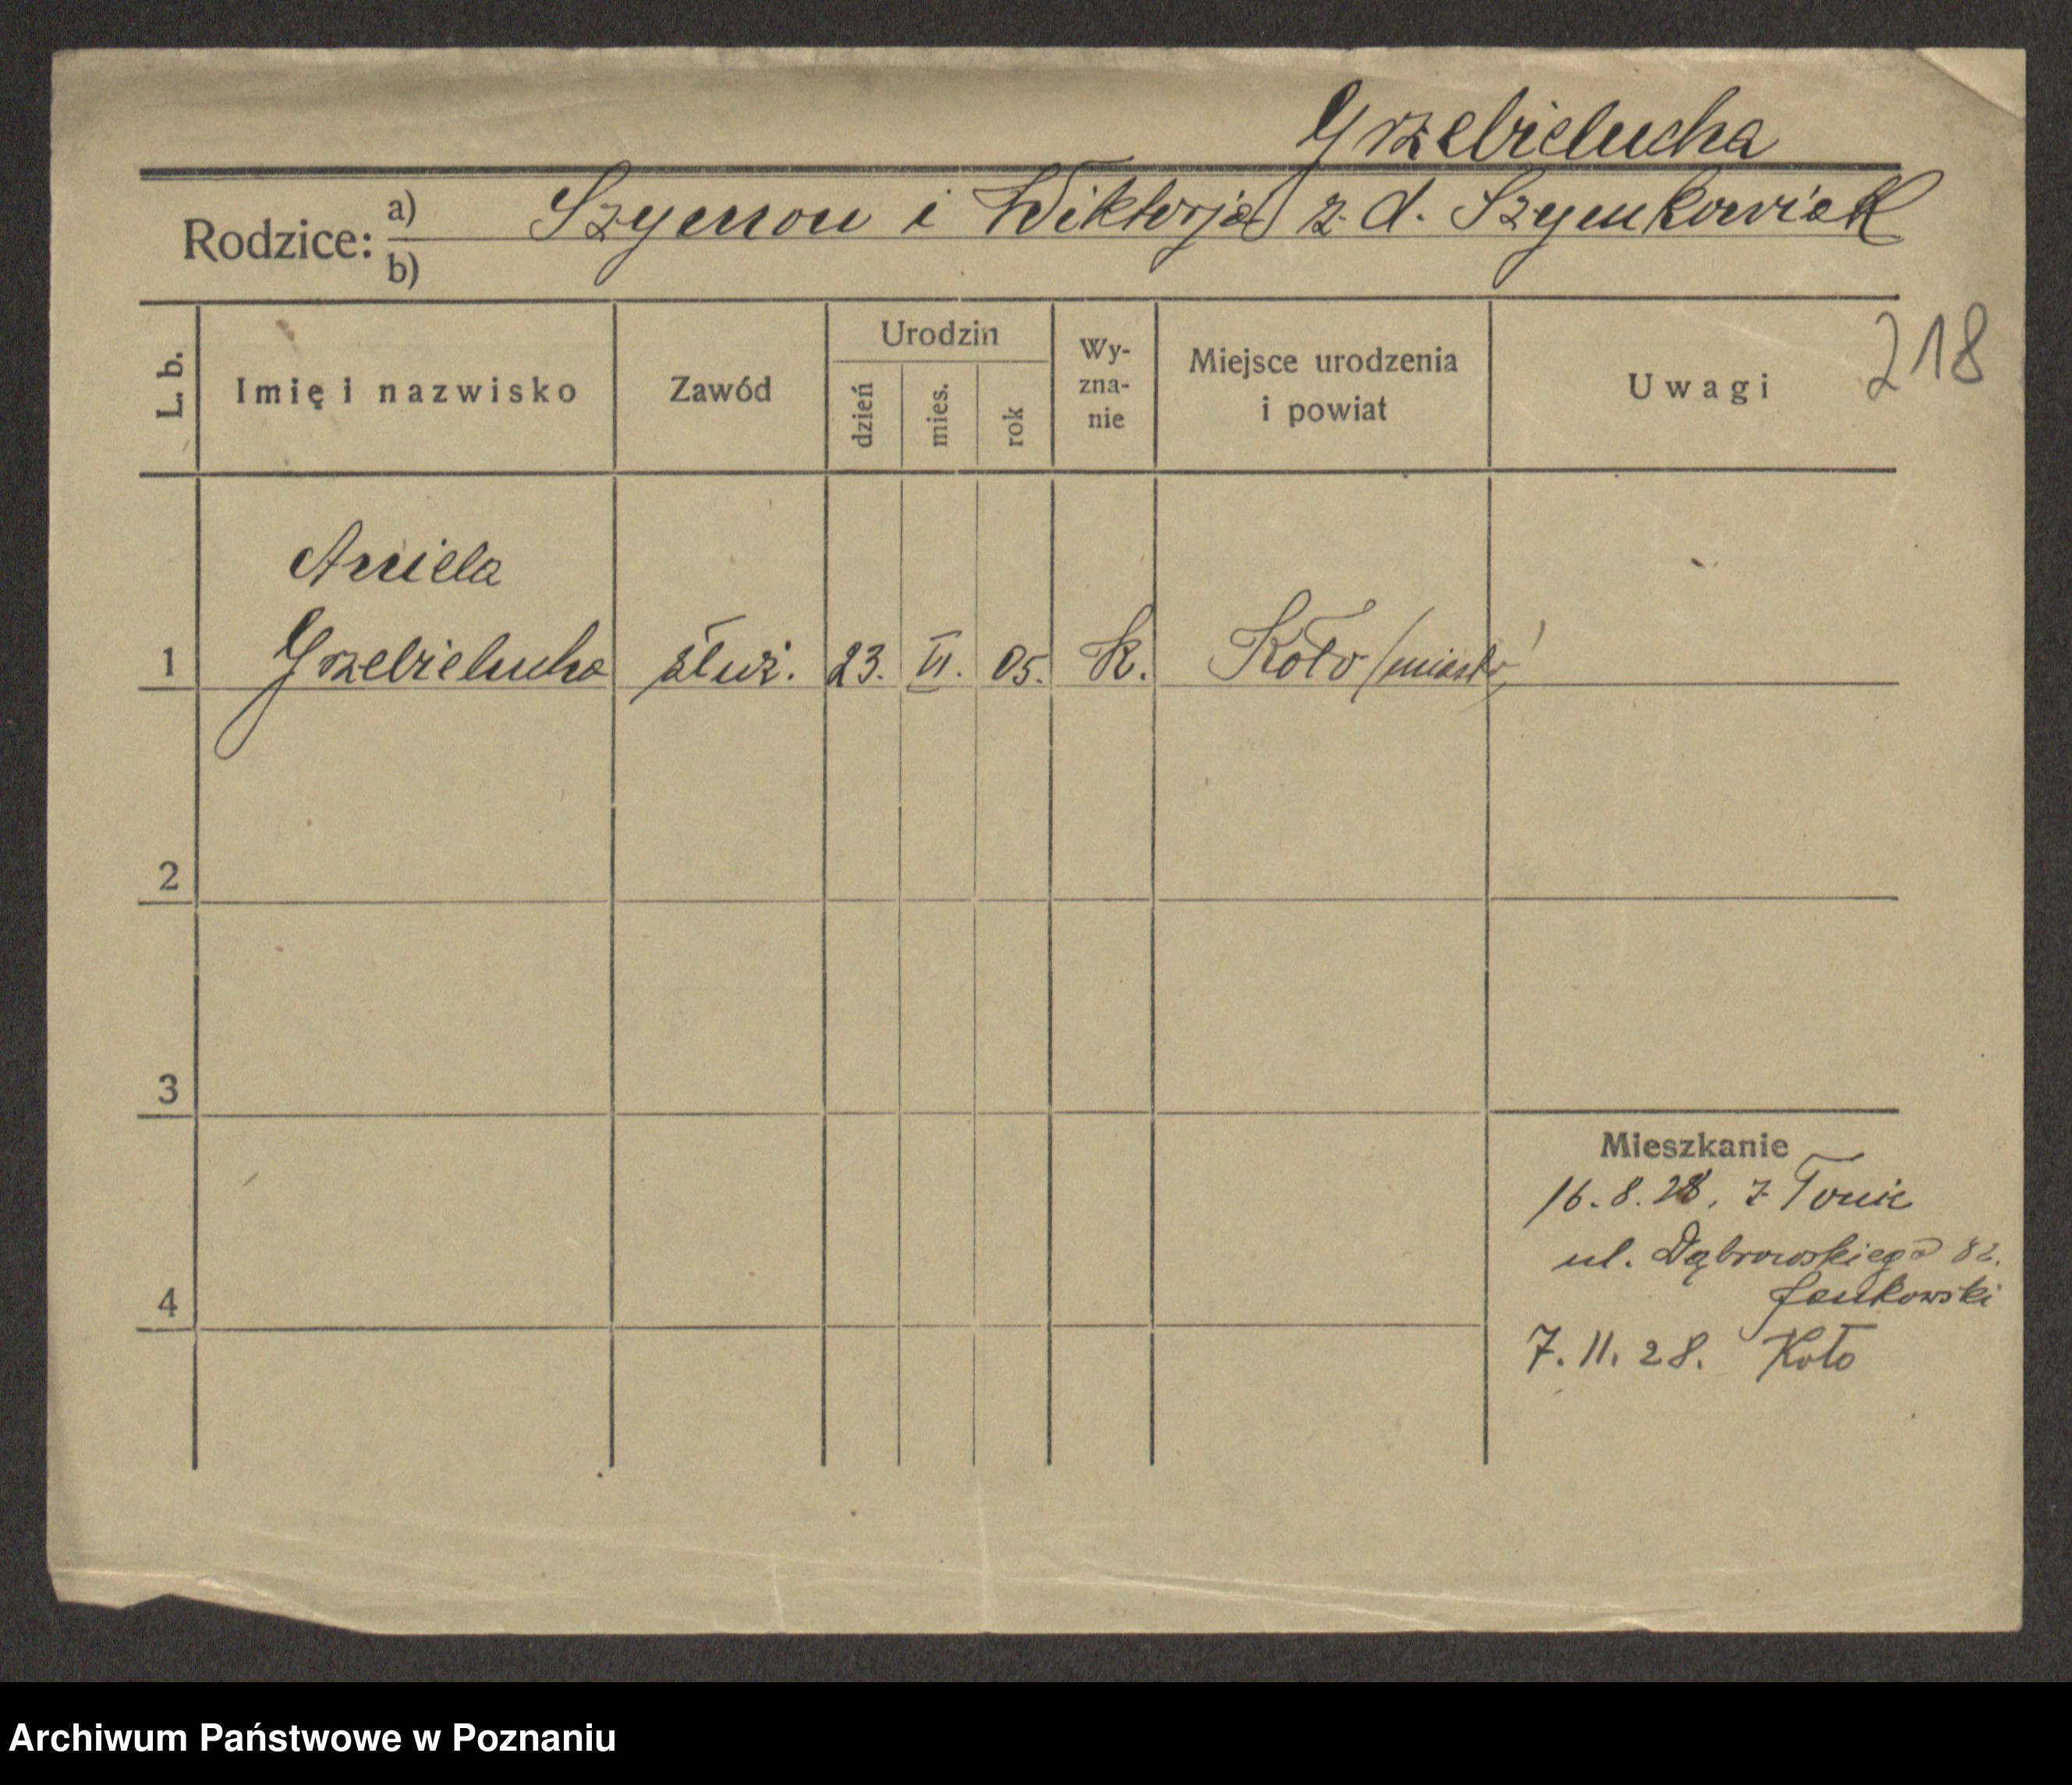 Grzebielucha
Rodzice: a) Szymon i Wiktorja z d. Szymkowiak
b)
218
L. b. Imię i nazwisko Zawód Urodzin dzień mies. rok Wy-zna-nie Miejsce urodzenia i powiat Uwagi
Aniela
1 Grzebielucha służ. 23. VI. 05. K. Koło (miasto)
2
3
Mieszkanie
16. 8. 28. z
ul. Dąbrowskiego 82.
Jankowski
4
7. 11. 28. Koło
Archiwum Państwowe w Poznaniu